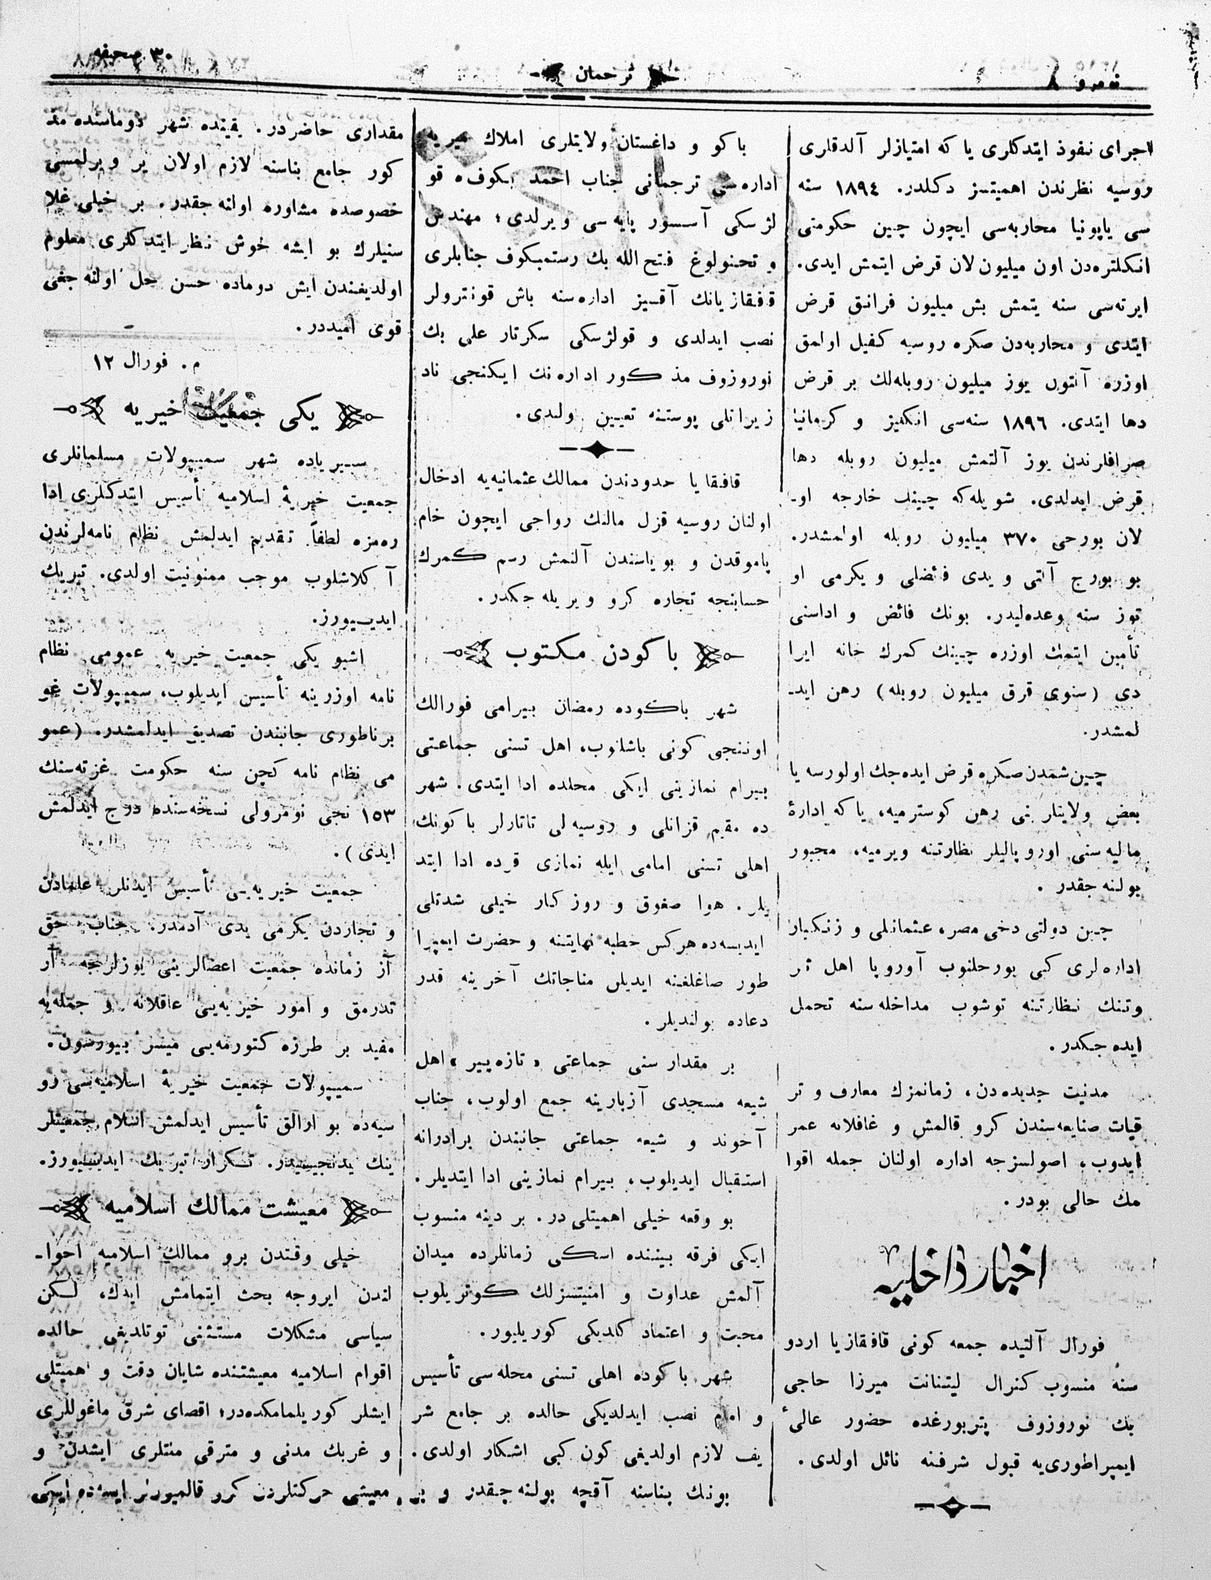 نومرو ٨
ترجمان
٣٠ صحیفه
اجرای نفوذ ایتدكلری یا كه امتیازلر آلدقلری
روسیه نظرندن اهمیتسز دكلدر. ١٨٩٤ سنه
سی یاپونیا محاربه‌سی ایچون چین حكومتی
انكلتره‌دن اون میلیون لان قرض ایتمش ایدی.
ایرته‌سی سنه یتمش بش میلیون فرانق قرض
ایتدی و محاربه‌دن صكره روسیه كفیل اولمق
اوزره آلتون یوز میلیون روبله‌لك بر قرض
دها ایتدی. ١٨٩٦ سنه‌سی انكلیز و كرمانیا
صرافلرندن یوز آلتمش میلیون روبله دها
قرض ایدلدی. شویله‌كه چینك خارجه او۔
لان بورجی ٣٧٠ میلیون روبله اولمشدر.
بو بورج آلتی و یدی فائضلی و یكرمی او
توز سنه وعده‌لیدر. بونك فائض و اداسنی
تأمین ایتمك اوزره چینك كمرك خانه ایرا
دی (سنوی قرق میلیون روبله) رهن اید۔
لمشدر.
چین شمدن صكره قرض ایده‌جك اولورسه یا
بعض ولایتلرینی رهن كوسترمیه، یا كه ادارهٔ
مالیه‌سنی اوروپالیلر نظارتنه ویرمیه، مجبور
بولنه جقدر .
چین دولتی دخی مصر، عثمانلی و زنكبار
اداره‌لری كبی بورجلنوب آوروپا اهل ثر
وتنك نظارتنه توشوب مداخله‌سنه تحمل
ایده جكدر.
مدنیت جدیده‌دن، زمانمزك معارف و تر
قیات صنایعه‌سندن كرو قالمش و غافلانه عمر
ایدوب، اصولسزجه اداره اولنان جمله اقوا
مك حالی بودر.
اخبار داخلیه
فورال آلتیده جمعه كونی قافقازیا اردو
سنه منسوب كنرال لیتنانت میرزا حاجی
بك نوروزوف پتربورغده حضور عالیٔ
ایمپراطوری‌یه قبول شرفنه نائل اولدی.
باكو و داغستان ولایتلری املاك میریه
اداره‌سی ترجمانی جناب احمد بكوف‌ه قو
لژسكی آسسور پایه‌سی ویرلدی؛ مهندس
و تحنولوغ فتح الله بك رستمبكوف جنابلری
قفقازیانك آقسیز اداره‌سنه باش قونترولر
نصب ایدلدی و قولژسكی سكرتار علی بك
نوروزوف مذكور اداره‌نك ایكنجی ناد
زیراتلی پوستنه تعیین ولدی.
قافقایا حدودندن ممالك عثمانیه‌یه ادخال
اولنان روسیه قزل مالنك رواجی ایچون خام
پاموقدن و بویاسندن آلنمش رسم كمرك
حسابنجه تجاره كرو ویریله جكدر.
باكودن مكتوب
شهر باكوده رمضان بیرامی فورالك
اوننجی كونی باشلنوب، اهل تسنی جماعتی
بیرام نمازینی ایكی محلده ادا ایتدی. شهر
ده مقیم قزانلی و روسیه‌لی تاتارلر باكونك
اهلی تسنی امامی ایله نمازی قرده ادا ایتد
یلر. هوا صغوق و روزكار خیلی شدتلی
ایدیسه‌ده هركس خطبه نهایتنه و حضرت ایمپرا
طور صاغلغنه ایدیلن مناجاتك آخرینه قدر
دعاده بولندیلر.
بر مقدار سنی جماعتی «تازه پیر» اهل
شیعه مسجدی آزبارینه جمع اولوب، جناب
آخوند و شیعه جماعتی جانبندن برادرانه
استقبال ایدیلوب، بیرام نمازینی ادا ایتدیلر.
بو وقعه خیلی اهمیتلی‌در. بر دینه منسوب
ایكی فرقه بیننده اسكی زمانلرده میدان
آلمش عداوت و امنیتسزلك كوتریلوب
محبت و اعتماد كلدیكی كوریلیور.
شهر باكوده اهلی تسنی محله‌سی تأسیس
و امام نصب ایدلدیكی حالده بر جامع شر
یف لازم اولدیغی كون كبی اشكار اولدی.
بونك بناسنه آقچه بولنه جقدر و بر
مقداری حاضردر. یقینده شهر دوماسنده مذ
كور جامع بناسنه لازم اولان یر ویرلمسی
خصوصده مشاوره اولنه جقدر. بر خیلی غلا
سنیلرك بو ایشه خوش نظر ایتدكلری معلوم
اولدیغندن ایش دوماده حسن حل اولنه جغی
قوی امیددر.
م. فورال ١٢
یكی جمعیت خیریه
سبریاده شهر سمیپولات مسلمانلری
جمعیت خیریهٔ اسلامیه تأسیس ایتدكلری ادا
ره‌مزه لطفاً تقدیم ایدلمش نظام نامه‌لرندن
آكلاشلوب موجب ممنونیت اولدی. تبریك
ایدییورز.
اشبو یكی جمعیت خیریه عمومی نظام
نامه اوزرینه تأسیس ایدیلوب، سمیپولات غو
برناطوری جانبندن تصدیق ایدلمشدر. (عمو
می نظام نامه كچن سنه حكومت غزته‌سنك
١٥٣ نجی نومرولی نسخه‌سنده درج ایدلمش
ایدی).
جمعیت خیریه‌یی تأسیس ایدنلر علمادن
و تجاردن یكرمی یدی آدمدر. جناب حق
آز زمانده جمعیت اعضالرینی یوزلرجه آر
تدرمق و امور خیریه‌یی عاقلانه و جمله‌یه
مفید بر طرزه كتورمه‌یی میسر بیورسون.
سمیپولات جمعیت خیریهٔ اسلامیه‌سی رو
سیه‌ده بو ارالق تأسیس ایدلمش اسلام جمعیتلر
ینك یدنجیسیدر. تكرار تبریك ایدییورز.
معیشت ممالك اسلامیه
خیلی وقتدن برو ممالك اسلامیه احوا۔
لندن ایروجه بحث ایتمامش ایدك، لكن
سیاسی مشكلات مستثنی توتلدیغی حالده
اقوام اسلامیه معیشتنده شایان دقت و اهمیتلی
ایشلر كوریلمامكده‌در؛ اقصای شرق ماغوللری
و غربك مدنی و مترقی ملتلری ایشدن و
معیشی حركتلردن كرو قالمیورلر ایسه‌ده ایكی